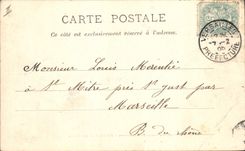 CARTE POSTALE
Ce côté est exclusivement réservé à l'adresse.
VERSAILLES
PREFECTURE
Monsieur Louis
à St Mitre près St Just par
Marseille
B. du Rhône